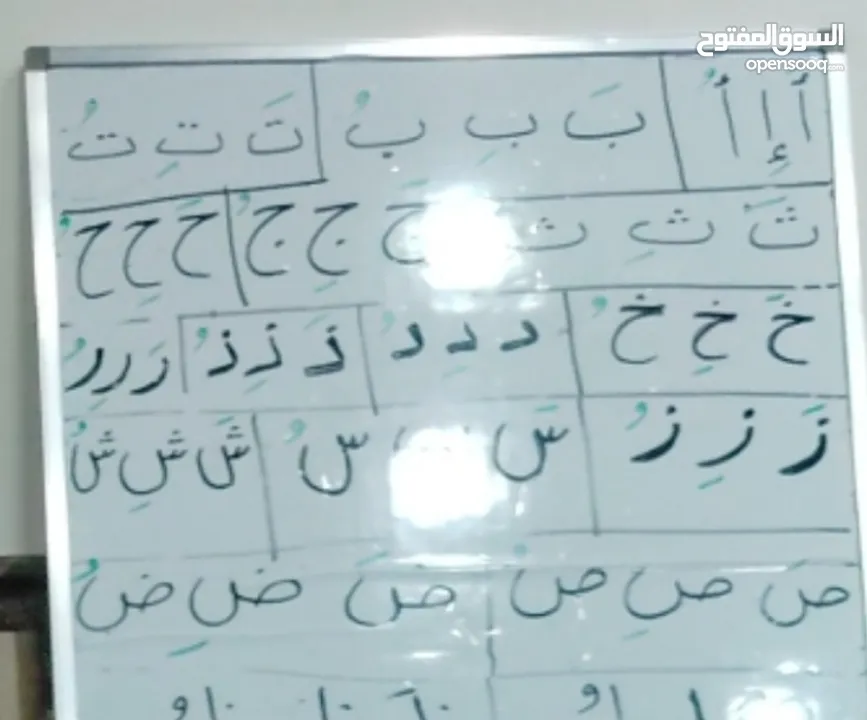 السوق المفتوح
opensooq.com
أَ إِ أُ بَ بِ بُ تَ تِ تُ
ثَ ثِ ث جَ جِ جُ حَ حِ حُ
خَ خِ خُ دَ دِ دُ ذَ ذِ ذُ رَ رِ رُ
زَ زِ زُ سَ سُ شَ شِ شُ
صَ صِ صُ ضَ ضِ ضُ